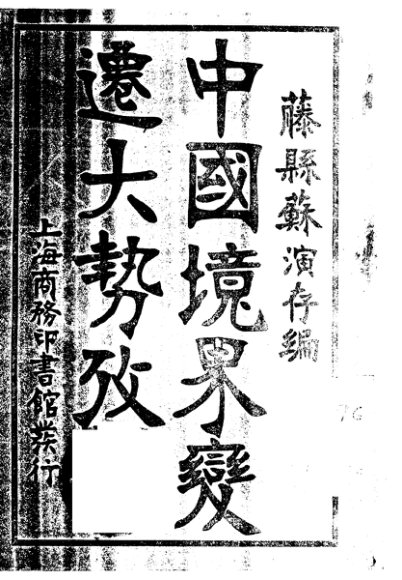 藤縣蘇演存編
中國境界變
遷大勢攷
上海商務印書館發行